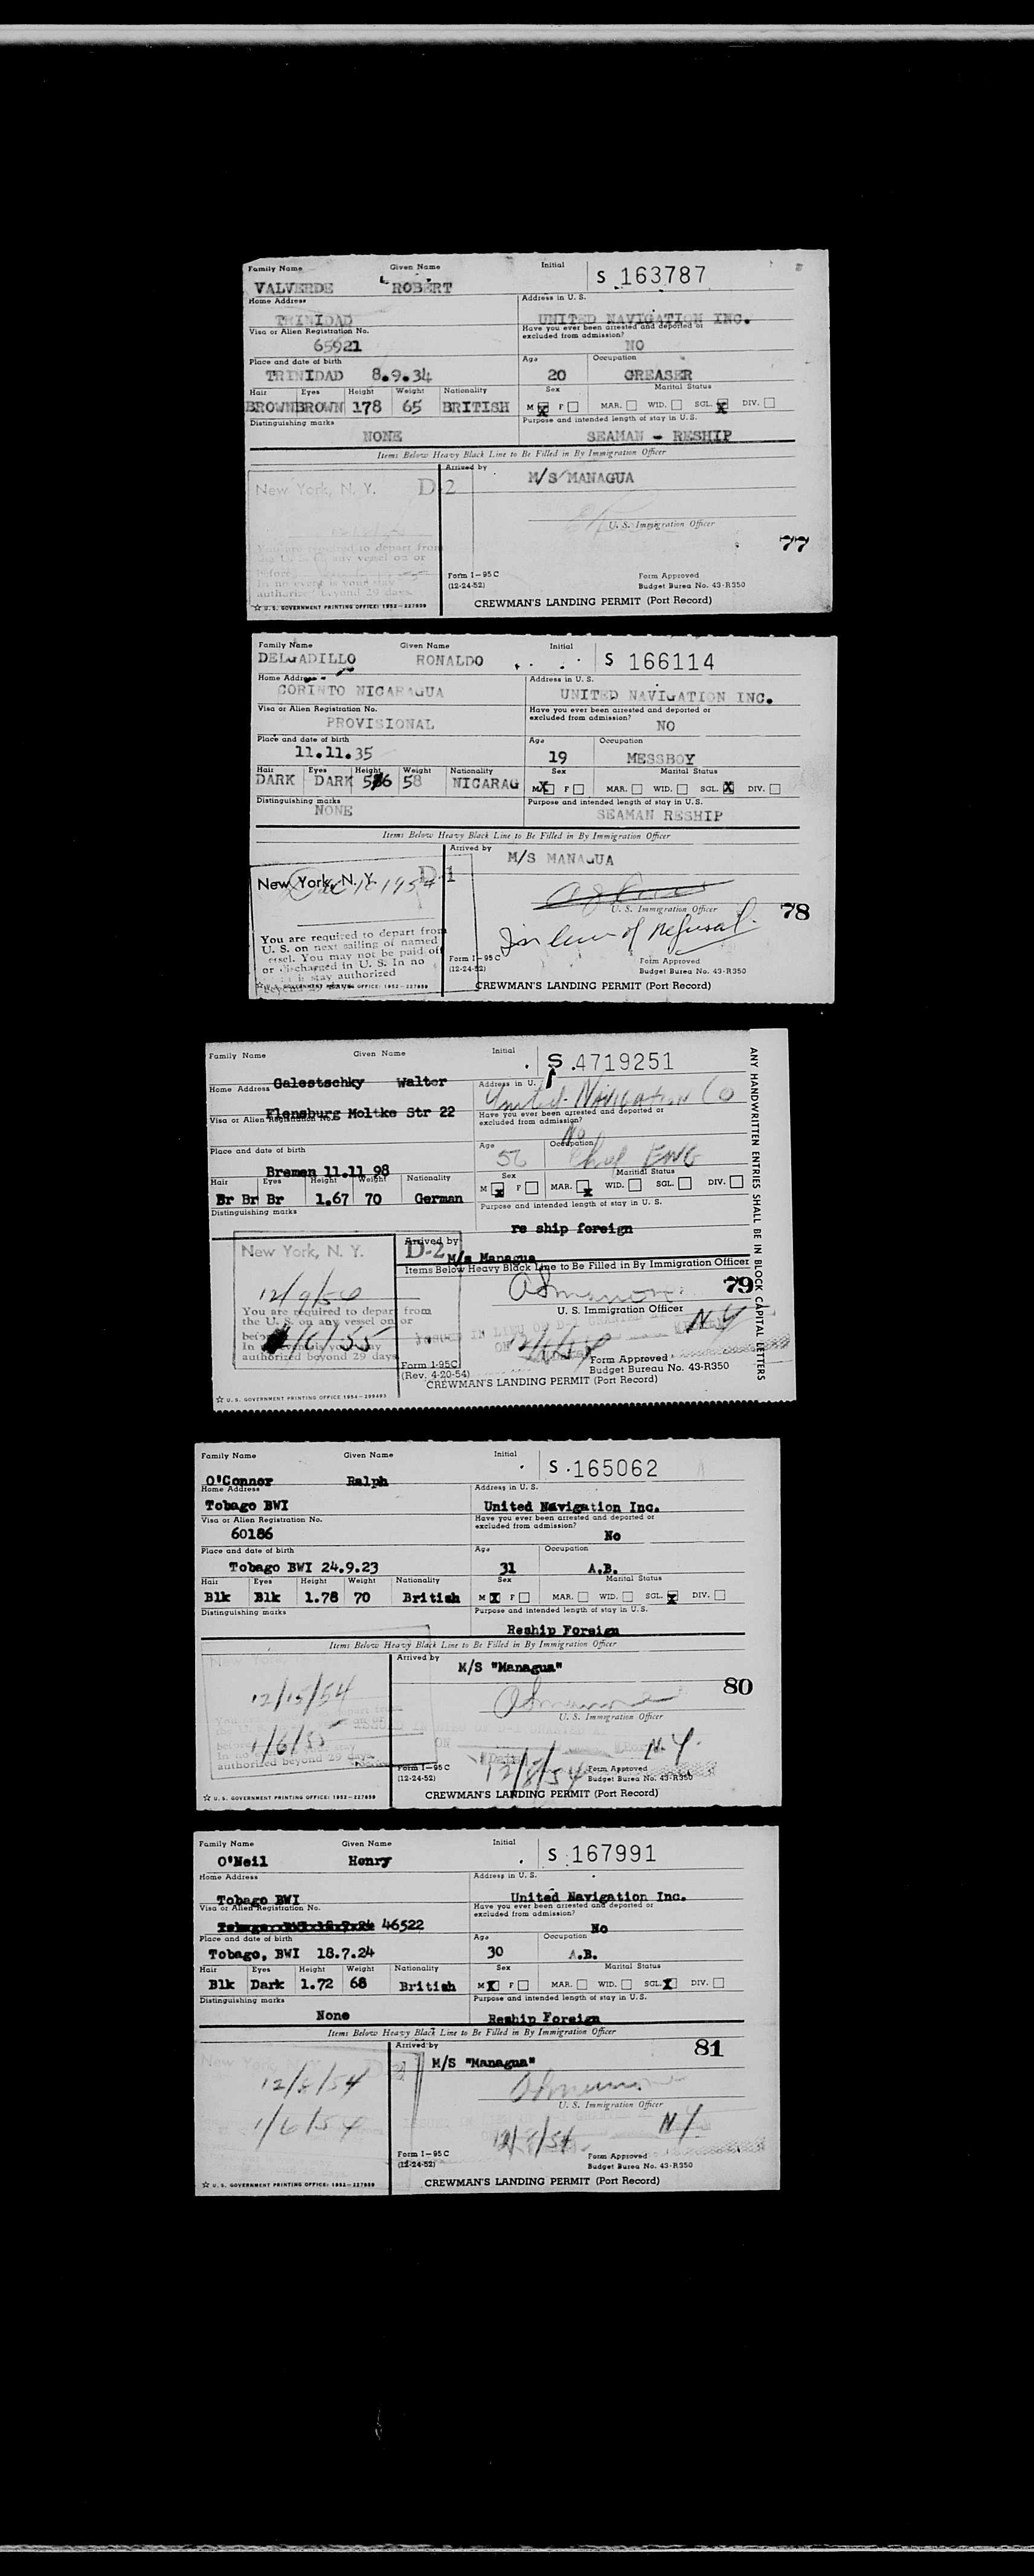 Family Name Given Name Initial S 163787
VALVERDE ROBERT
Home Address Address in U. S.
TRINIDAD UNITED NAVIGATION INC.
Visa or Alien Registration No. Have you ever been arrested and deported or excluded from admission?
65921 NO
Place and date of birth Age Occupation
TRINIDAD 8.9.34 20 GREASER
Hair Eyes Height Weight Nationality Sex Marital Status
BROWN BROWN 178 65 BRITISH M X F MAR. WID. SGL. X DIV.
Distinguishing marks Purpose and intended length of stay in U.S.
NONE SEAMAN - RESHIP
Items Below Heavy Black Line to Be Filled in By Immigration Officer
Arrived by
New York, N. Y. D-2 M/S MANAGUA
U. S. Immigration Officer
You are required to depart from
the U. S. on any vessel on or
before
In no event is your stay
authorized beyond 29 days
77
Form I-95C (12-24-52)
Form Approved
Budget Burea No. 43-R350
☆ U. S. GOVERNMENT PRINTING OFFICE: 1952-227859
CREWMAN'S LANDING PERMIT (Port Record)
Family Name Given Name Initial S 166114
DELGADILLO RONALDO
Home Address Address in U. S.
CORINTO NICARAGUA UNITED NAVIGATION INC.
Visa or Alien Registration No. Have you ever been arrested and deported or excluded from admission?
PROVISIONAL NO
Place and date of birth Age Occupation
11.11.35 19 MESSBOY
Hair Eyes Height Weight Nationality Sex Marital Status
DARK DARK 58 NICARAG M X F MAR. WID. SGL. X DIV.
Distinguishing marks Purpose and intended length of stay in U.S.
NONE SEAMAN RESHIP
Items Below Heavy Black Line to Be Filled in By Immigration Officer
Arrived by
M/S MANAGUA
New York, N. Y. D-1
U. S. Immigration Officer
78
In lieu of Refusal.
You are required to depart from
U. S. on next sailing of named
vessel. You may not be paid off
or discharged in U. S. In no
stay authorized
beyond 29
Form I-95C (12-24-52)
Form Approved
Budget Burea No. 43-R350
☆ U. S. GOVERNMENT PRINTING OFFICE: 1952-227859
CREWMAN'S LANDING PERMIT (Port Record)
Family Name Given Name Initial S 4719251
Galestschky Walter
Home Address Address in U. S.
United Navigation Co
Flensburg Moltke Str 22
Visa or Alien Registration No. Have you ever been arrested and deported or excluded from admission?
No
Place and date of birth Age Occupation
Bremen 11.11 98 56 Chief Eng
Hair Eyes Height Weight Nationality Sex Maritial Status
Br Br Br 1.67 70 German M X F MAR. X WID. SGL. DIV.
Distinguishing marks Purpose and intended length of stay in U.S.
re ship foreign
Arrived by
New York, N. Y. D-2 M/s Managua
Items Below Heavy Black Line to Be Filled in By Immigration Officer
79
12/9/54
U. S. Immigration Officer
You are required to depart from
the U. S. on any vessel on or
before 1/6/55
In no event is your stay
authorized beyond 29 days
ISSUED IN LIEU OF D-1 GRANTED
ON 12/8/54 N Y
Form I-95C
(Rev. 4-20-54)
Form Approved
Budget Bureau No. 43-R350
☆ U. S. GOVERNMENT PRINTING OFFICE 1954-299493
CREWMAN'S LANDING PERMIT (Port Record)
ANY HANDWRITTEN ENTRIES SHALL BE IN BLOCK CAPITAL LETTERS
Family Name Given Name Initial S 165062
O'Connor Ralph
Home Address Address in U. S.
Tobago BWI United Navigation Inc.
Visa or Alien Registration No. Have you ever been arrested and deported or excluded from admission?
60186 No
Place and date of birth Age Occupation
Tobago BWI 24.9.23 31 A.B.
Hair Eyes Height Weight Nationality Sex Marital Status
Blk Blk 1.78 70 British M X F MAR. WID. SGL. X DIV.
Distinguishing marks Purpose and intended length of stay in U.S.
Reship Foreign
Items Below Heavy Black Line to Be Filled in By Immigration Officer
Arrived by
M/S "Managua"
80
12/15/54
U. S. Immigration Officer
1/6/55
In no
authorized beyond 29 days
N.Y.
12/8/54
Form I-95C (12-24-52)
Form Approved
Budget Burea No. 43-R350
☆ U. S. GOVERNMENT PRINTING OFFICE: 1952-227859
CREWMAN'S LANDING PERMIT (Port Record)
Family Name Given Name Initial S 167991
O'Neil Henry
Home Address Address in U. S.
Tobago BWI United Navigation Inc.
Visa or Alien Registration No. Have you ever been arrested and deported or excluded from admission?
46522 No
Place and date of birth Age Occupation
Tobago, BWI 18.7.24 30 A.B.
Hair Eyes Height Weight Nationality Sex Marital Status
Blk Dark 1.72 68 British M X F MAR. WID. SGL. X DIV.
Distinguishing marks Purpose and intended length of stay in U.S.
None Reship Foreign
Items Below Heavy Black Line to Be Filled in By Immigration Officer
Arrived by
81
M/S "Managua"
12/8/54
U. S. Immigration Officer
1/6/54
12/8/54 N Y
Form I-95C (12-24-52)
Form Approved
Budget Burea No. 43-R350
☆ U. S. GOVERNMENT PRINTING OFFICE: 1952-227859
CREWMAN'S LANDING PERMIT (Port Record)